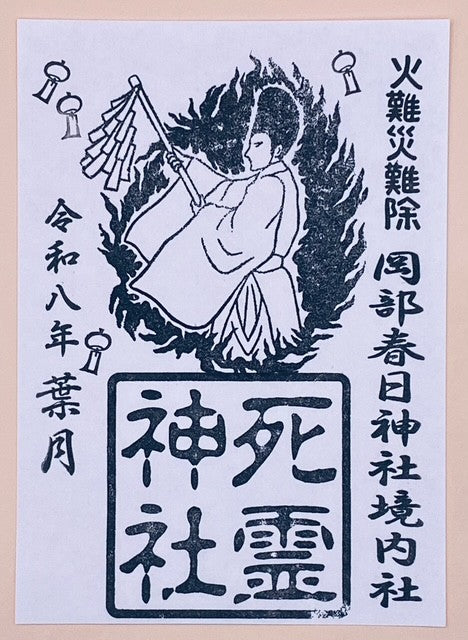 火難災難除
岡部春日神社境内社
死霊
神社
令和八年 葉月